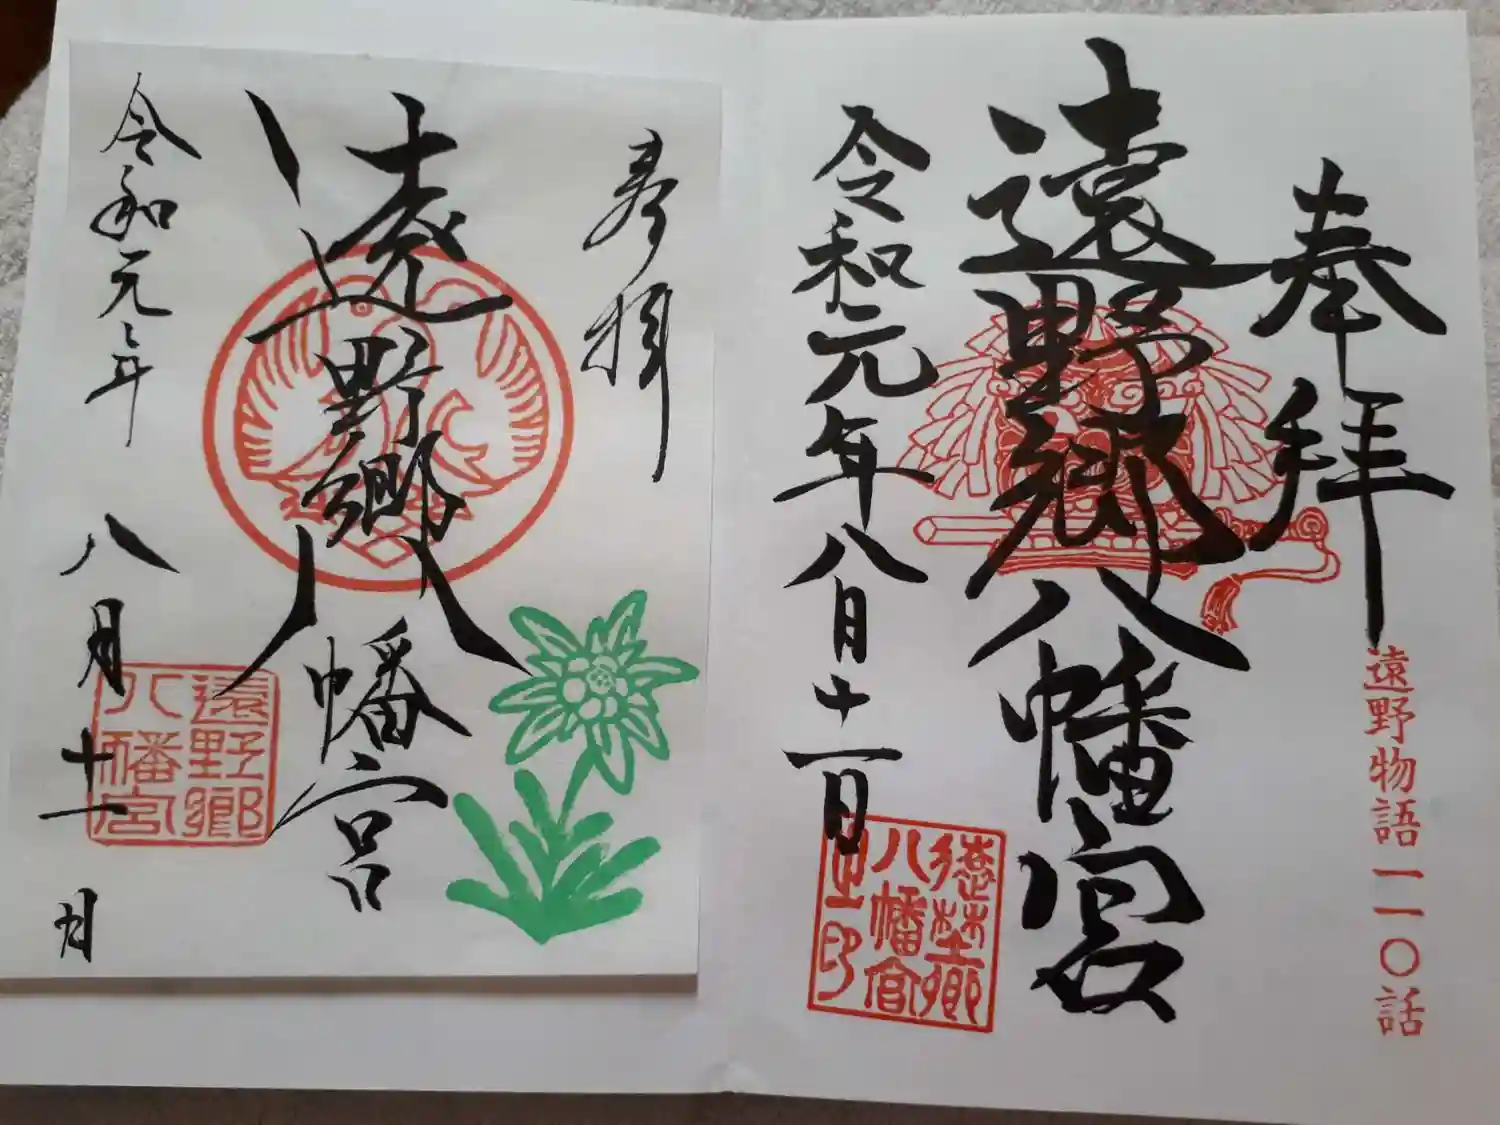 奉拝
遠野物語一一〇話
遠野郷八幡宮
令和元年八月十一日
遠野郷
八幡宮
之印
参拝
遠野郷八幡宮
令和元年八月十一日
遠野郷
八幡宮